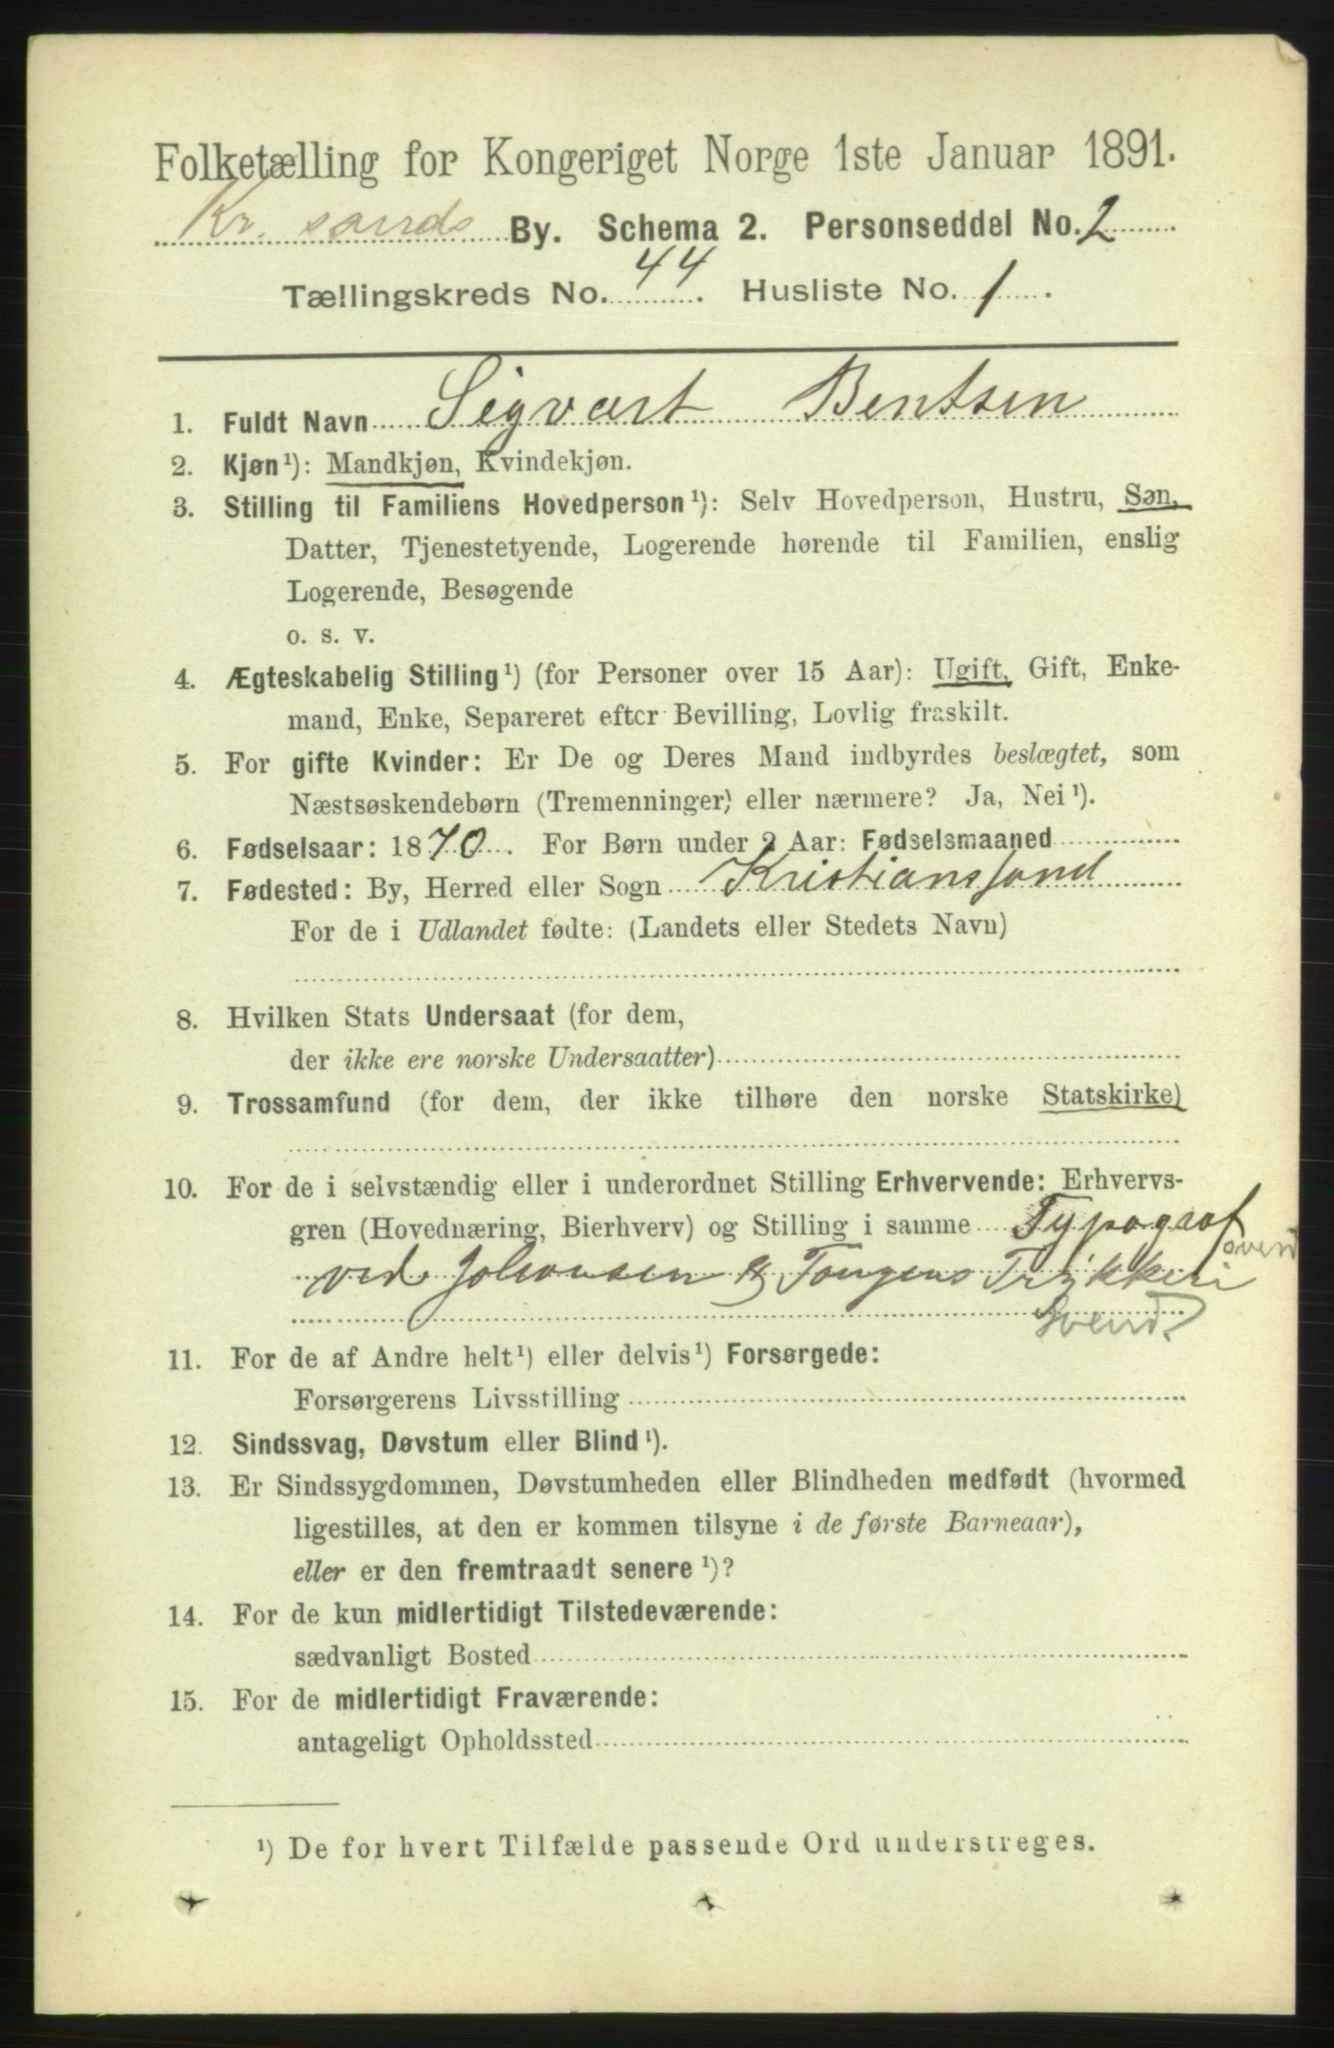 Folketælling for Kongeriget Norge 1ste Januar 1891.
Kr. sands By. Schema 2. Personseddel No. 2
Tællingskreds No. 44. Husliste No. 1.
1. Fuldt Navn Sigvart Bentsen
2. Kjøn¹): Mandkjøn, Kvindekjøn.
3. Stilling til Familiens Hovedperson¹): Selv Hovedperson, Hustru, Søn,
Datter, Tjenestetyende, Logerende hørende til Familien, enslig
Logerende, Besøgende
o. s. v.
4. Ægteskabelig Stilling¹) (for Personer over 15 Aar): Ugift, Gift, Enke-
mand, Enke, Separeret efter Bevilling, Lovlig fraskilt.
5. For gifte Kvinder: Er De og Deres Mand indbyrdes beslægtet, som
Næstsøskendebørn (Tremenninger) eller nærmere? Ja, Nei¹).
6. Fødselsaar: 1870. For Børn under 2 Aar: Fødselsmaaned
7. Fødested: By, Herred eller Sogn Kristianssand
For de i Udlandet fødte: (Landets eller Stedets Navn)
8. Hvilken Stats Undersaat (for dem,
der ikke ere norske Undersaatter)
9. Trossamfund (for dem, der ikke tilhøre den norske Statskirke)
10. For de i selvstændig eller i underordnet Stilling Erhvervende: Erhvervs-
gren (Hovednæring, Bierhverv) og Stilling i samme Typograf
svend
ved Johansen & Tangens Trykkeri
Svend?
11. For de af Andre helt¹) eller delvis¹) Forsørgede:
Forsørgerens Livsstilling
12. Sindssvag, Døvstum eller Blind¹).
13. Er Sindssygdommen, Døvstumheden eller Blindheden medfødt (hvormed
ligestilles, at den er kommen tilsyne i de første Barneaar),
eller er den fremtraadt senere¹)?
14. For de kun midlertidigt Tilstedeværende:
sædvanligt Bosted
15. For de midlertidigt Fraværende:
antageligt Opholdssted
¹) De for hvert Tilfælde passende Ord understreges.